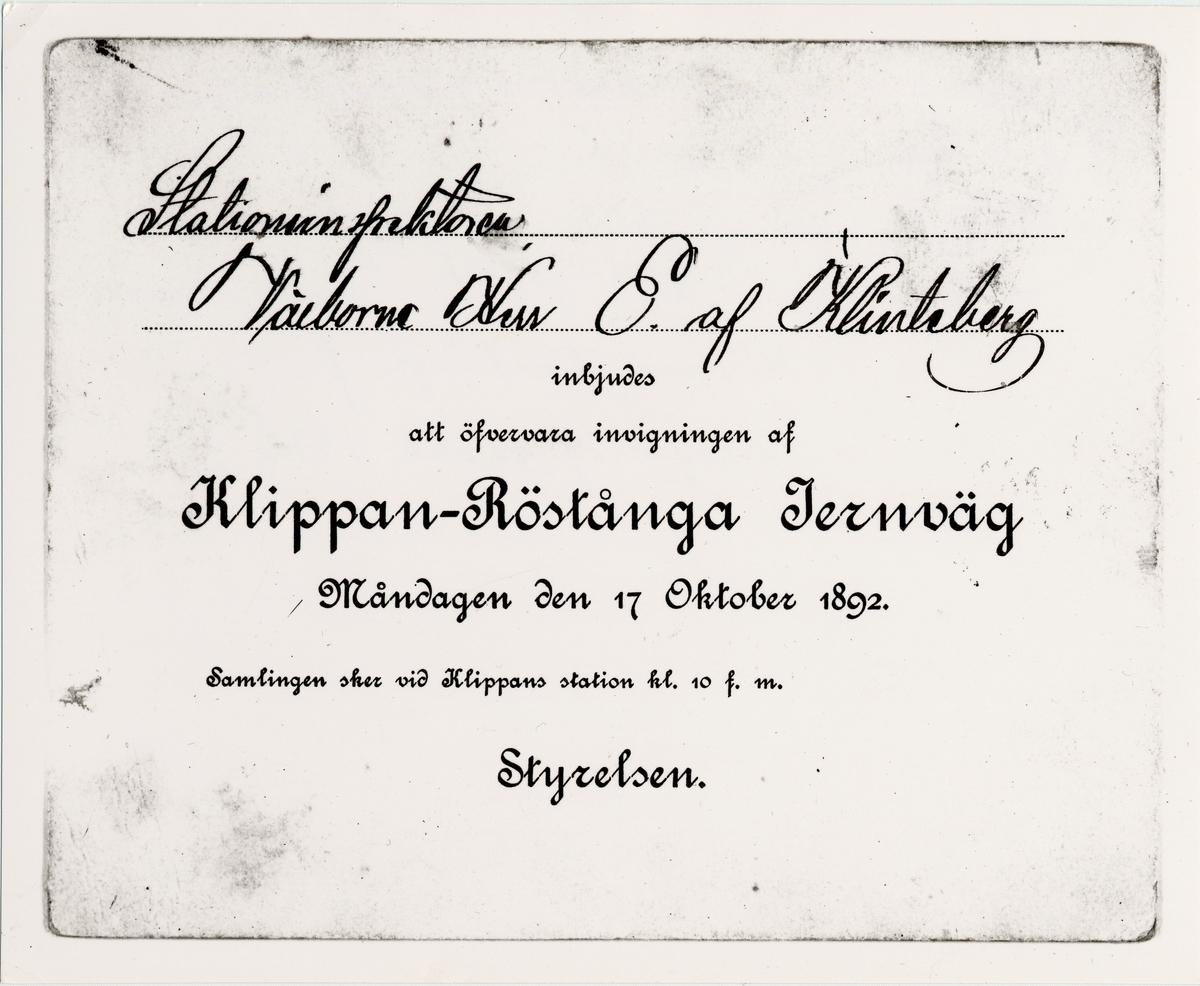 Stationsinspektoren
Välborne Herr E. af Klinteberg
inbjudes
att öfvervara invigningen af
Klippan-Röstånga Jernväg
Måndagen den 17 Oktober 1892.
Samlingen sker vid Klippans station kl. 10 f. m.
Styrelsen.